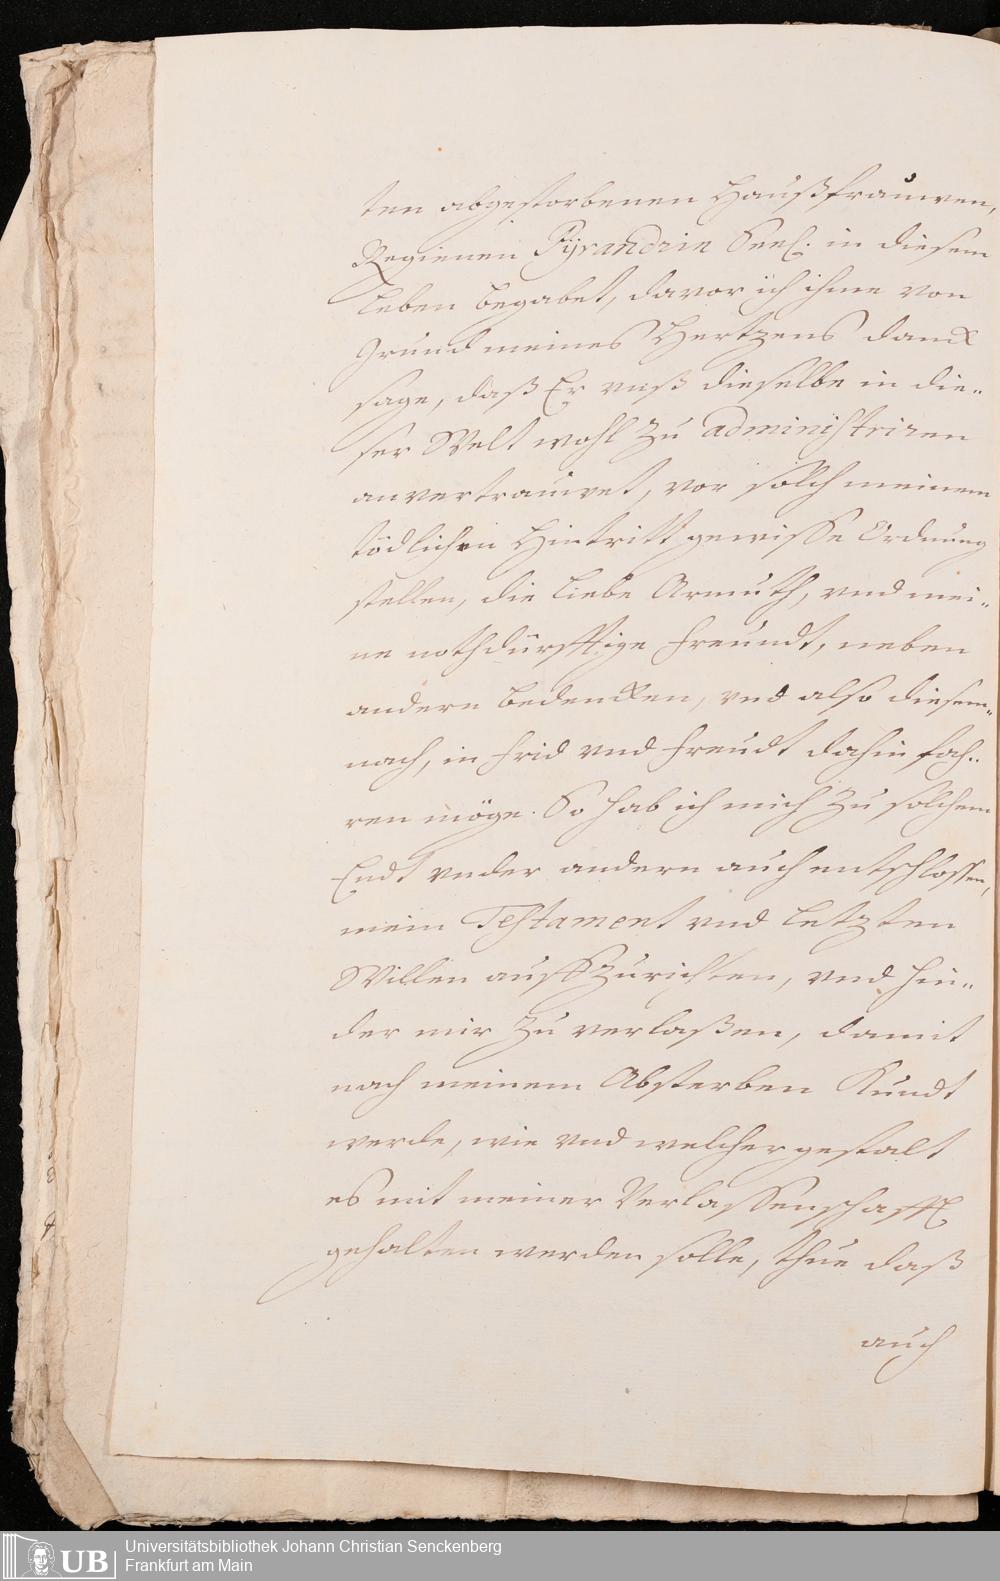 ten abgestorbenen Haußfrauwen,
Regienen Pÿrandrin Seel. in diesem
Leben begabet, davor ich ihme von
Grund meines Hertzens danck
sage, daß Er vnß dieselbe in die-
ser Welt wohl zu administriren
anvertrauwet, vor solch meinem
tödlichen Hintritt gewisse Ordnung
stellen, die liebe Armuth, vnd mei-
ne nothdürfftige Freundt, neben
andern bedencken, vnd also diesem-
nach, in Frid vnd Freudt dahin fah-
ren möge. So hab ich mich zu solchem
Endt vnder andern auch entschlossen,
mein Testament vnd letzten
Willen auffzurichten, vnd hin-
der mir zu verlaßen, damit
nach meinem Absterben Kundt
werde, wie vnd welcher gestalt
es mit meiner Verlassenschafft
gehalten werden solle, thue daß
auch
UB
Universitätsbibliothek Johann Christian Senckenberg
Frankfurt am Main